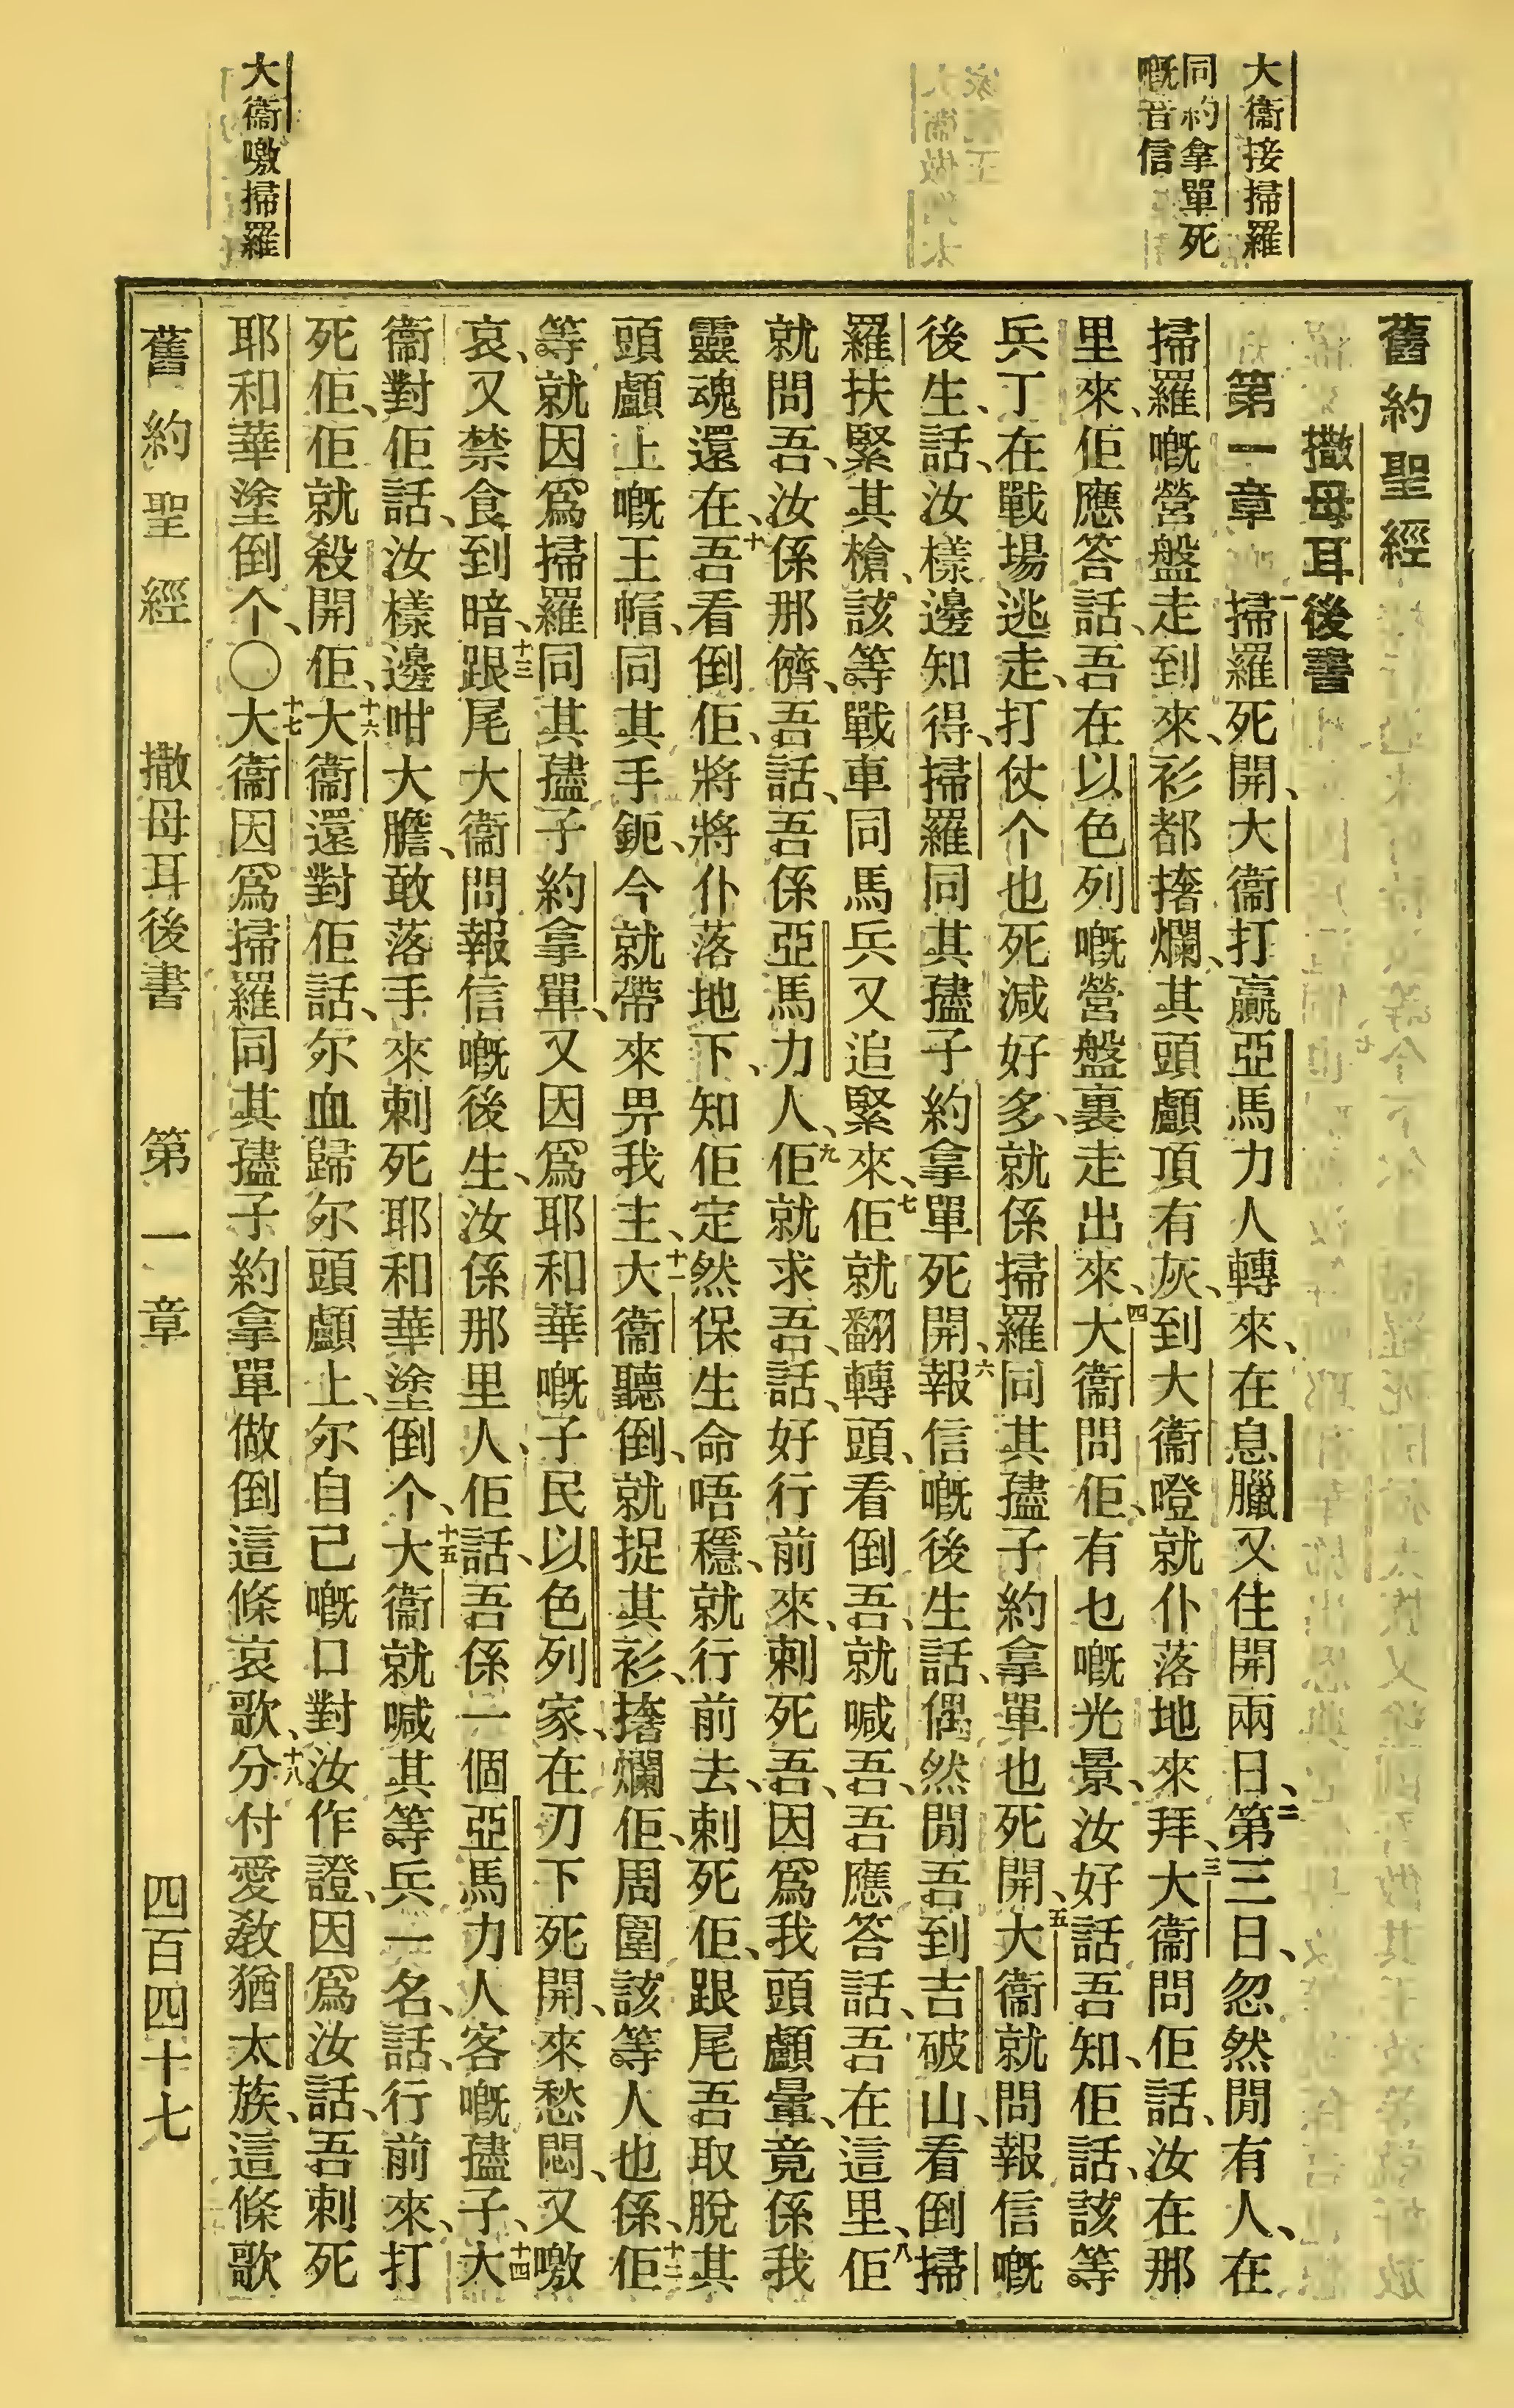 大衞接掃羅
同約拿單死
嘅音信
大衞噭掃羅
舊約聖經
撒母耳後書
第一章 一掃羅死開、大衞打贏亞馬力人轉來、在息臘又住開兩日、二第三日、忽然閒有人、在
掃羅嘅營盤走到來、衫都撦爛、其頭顱頂有灰、到大衞嶝就仆落地來拜、三大衞問佢話、汝在那
里來、佢應答話、吾在以色列嘅營盤裏走出來、四大衞問佢、有乜嘅光景、汝好話吾知、佢話、該等
兵丁在戰場逃走、打仗个也死減好多、就係掃羅同其𡥧子約拿單也死開、五大衞就問報信嘅
後生、話、汝樣邊知得、掃羅同其𡥧子約拿單死開、六報信嘅後生話、偶然閒吾到吉破山、看倒掃
羅扶緊其槍、該等戰車同馬兵又追緊來、七佢就翻轉頭、看倒吾、就喊吾、吾應答話、吾在這里、八佢
就問吾、汝係那儕、吾話、吾係亞馬力人、九佢就求吾、話、好行前來、刺死吾、因爲我頭顱暈、竟係我
靈魂還在、十吾看倒佢、將將仆落地下、知佢定然保生命唔穩、就行前去、刺死佢、跟尾吾取脫其
頭顱上嘅王帽、同其手鈪、今就帶來畀我主、十一大衞聽倒、就捉其衫、撦爛佢、周圍該等人也係、十二佢
等就因爲掃羅同其𡥧子約拿單、又因爲耶和華嘅子民以色列家、在刃下死開、來愁悶、又噭
哀、又禁食到暗、十三跟尾大衞問報信嘅後生、汝係那里人、佢話、吾係一個亞馬力人客嘅𡥧子、十四大
衞對佢話、汝樣邊咁大膽、敢落手來刺死耶和華塗倒个、十五大衞就喊其等兵一名、話、行前來、打
死佢、佢就殺開佢、十六大衞還對佢話、尔血歸尔頭顱上、尔自己嘅口對汝作證、因爲汝話、吾刺死
耶和華塗倒个、〇十七大衞因爲掃羅同其𡥧子約拿單做倒這條哀歌、十八分付愛敎猶太族、這條歌
舊約聖經 撒母耳後書 第一章 四百四十七